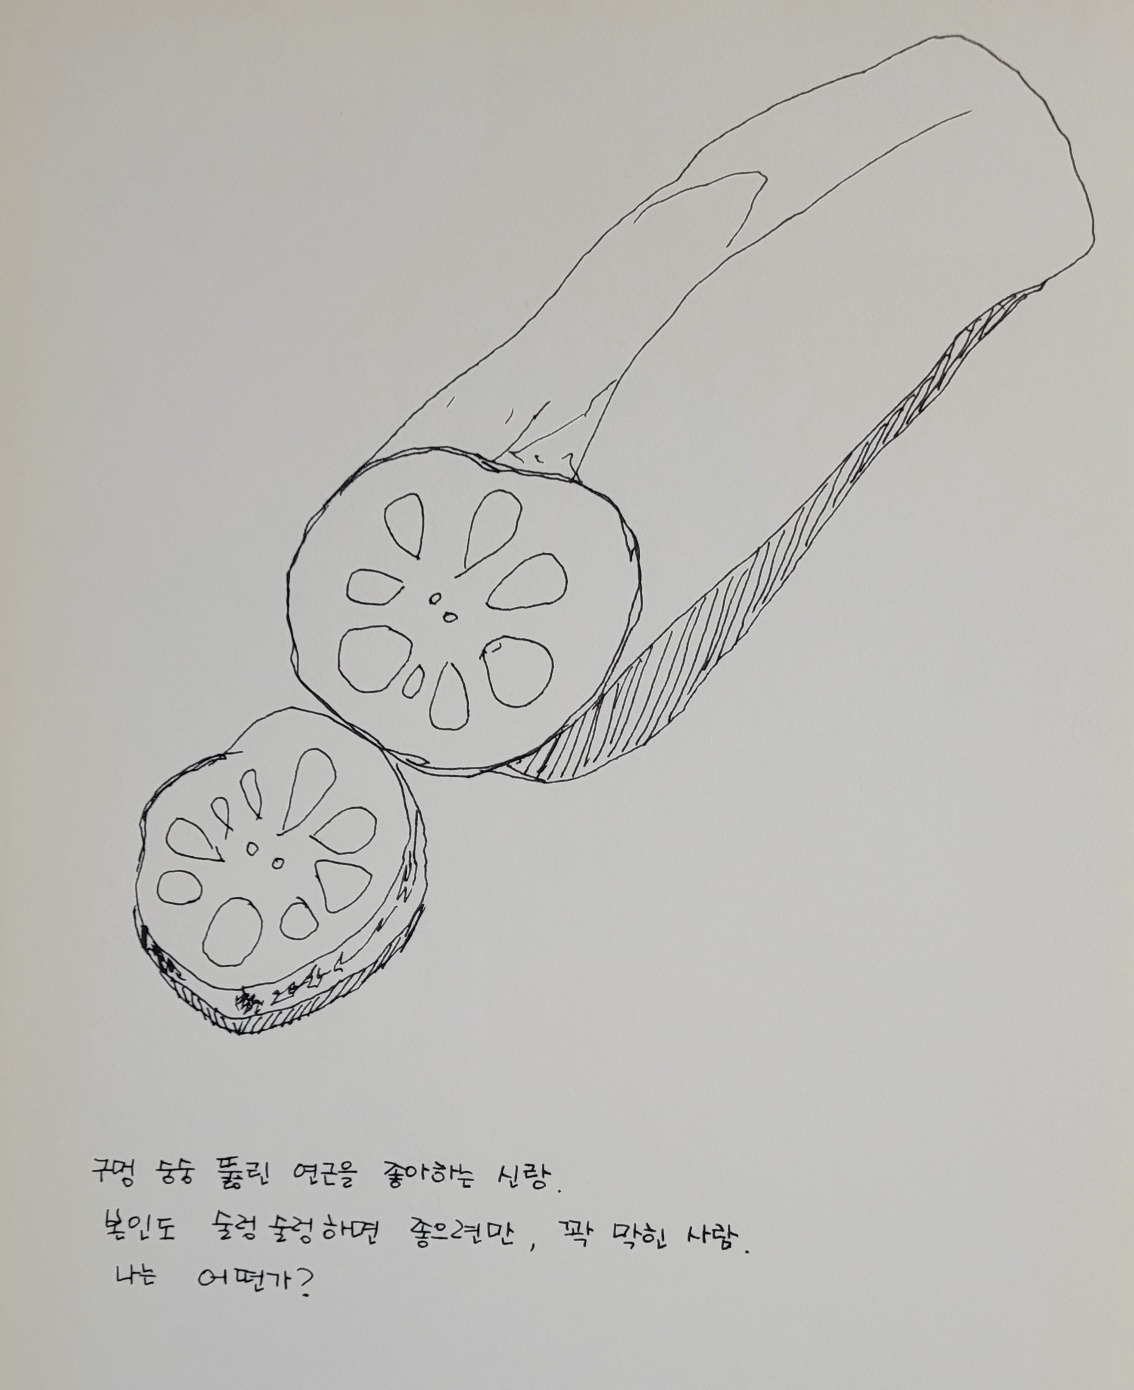 구멍 숭숭 뚫린 연근을 좋아하는 신랑.
본인도 술렁술렁하면 좋으련만, 꽉 막힌 사람.
나는 어떤가?